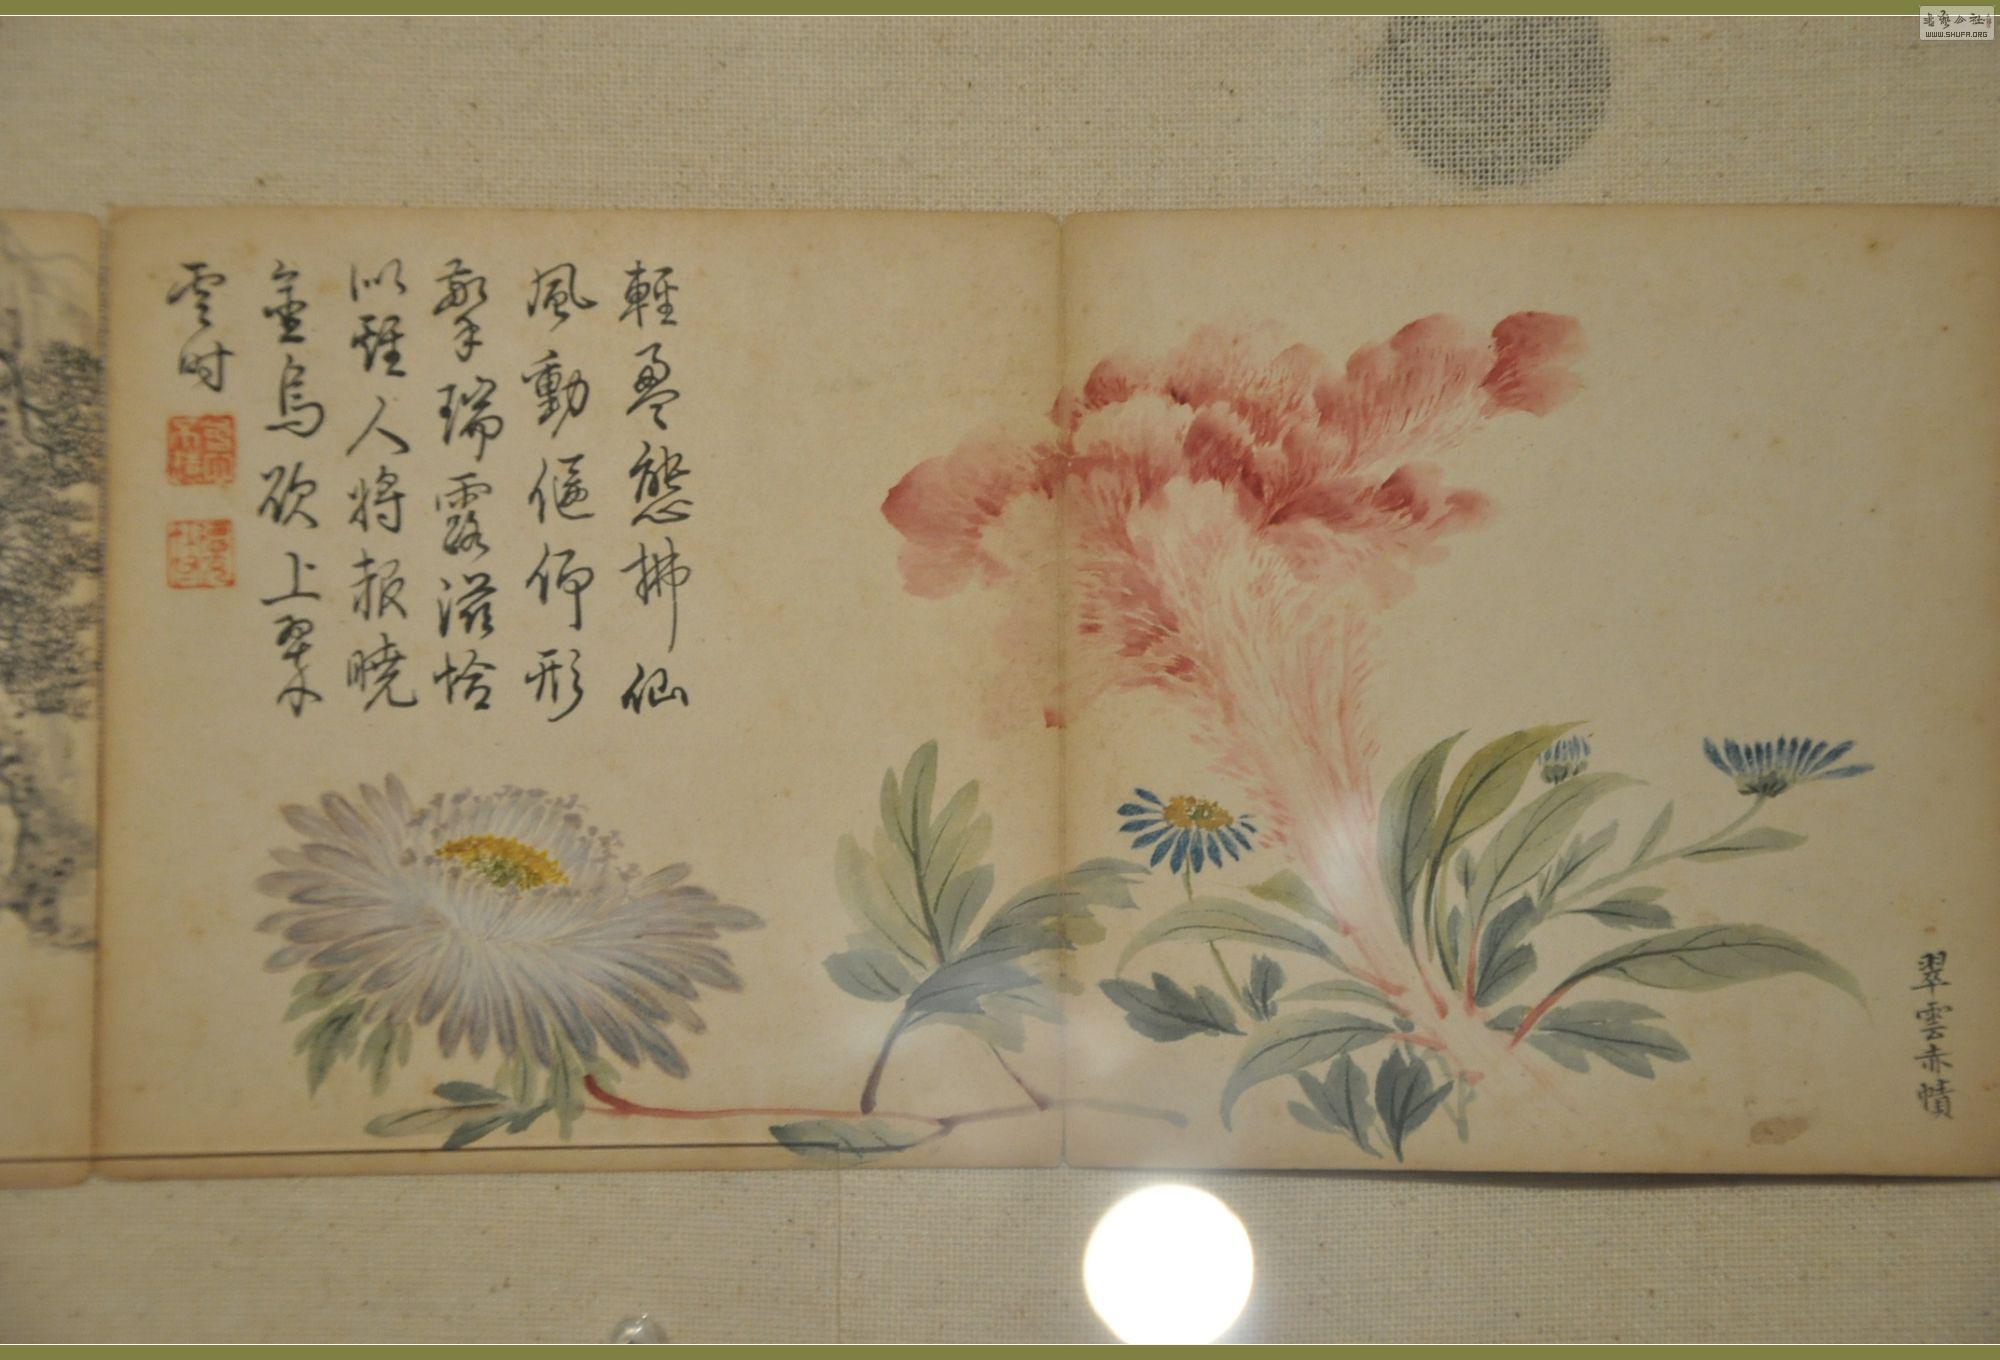 輕盈態拂仙
風動傴俯形
擎瑞露滋恰
似雞人將報曉
金烏欲上翠
雲时
翠雲赤幘
书艺公社
WWW.SHUFA.ORG